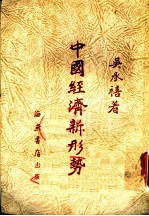 吳承禧著
中國經濟新形勢
海燕書店出版